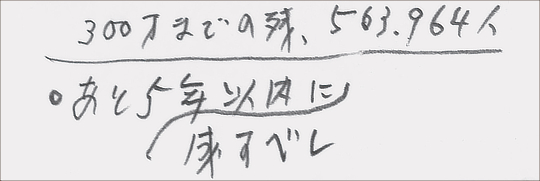 300万までの残、563.964人
○あと5年以内に
成すべし